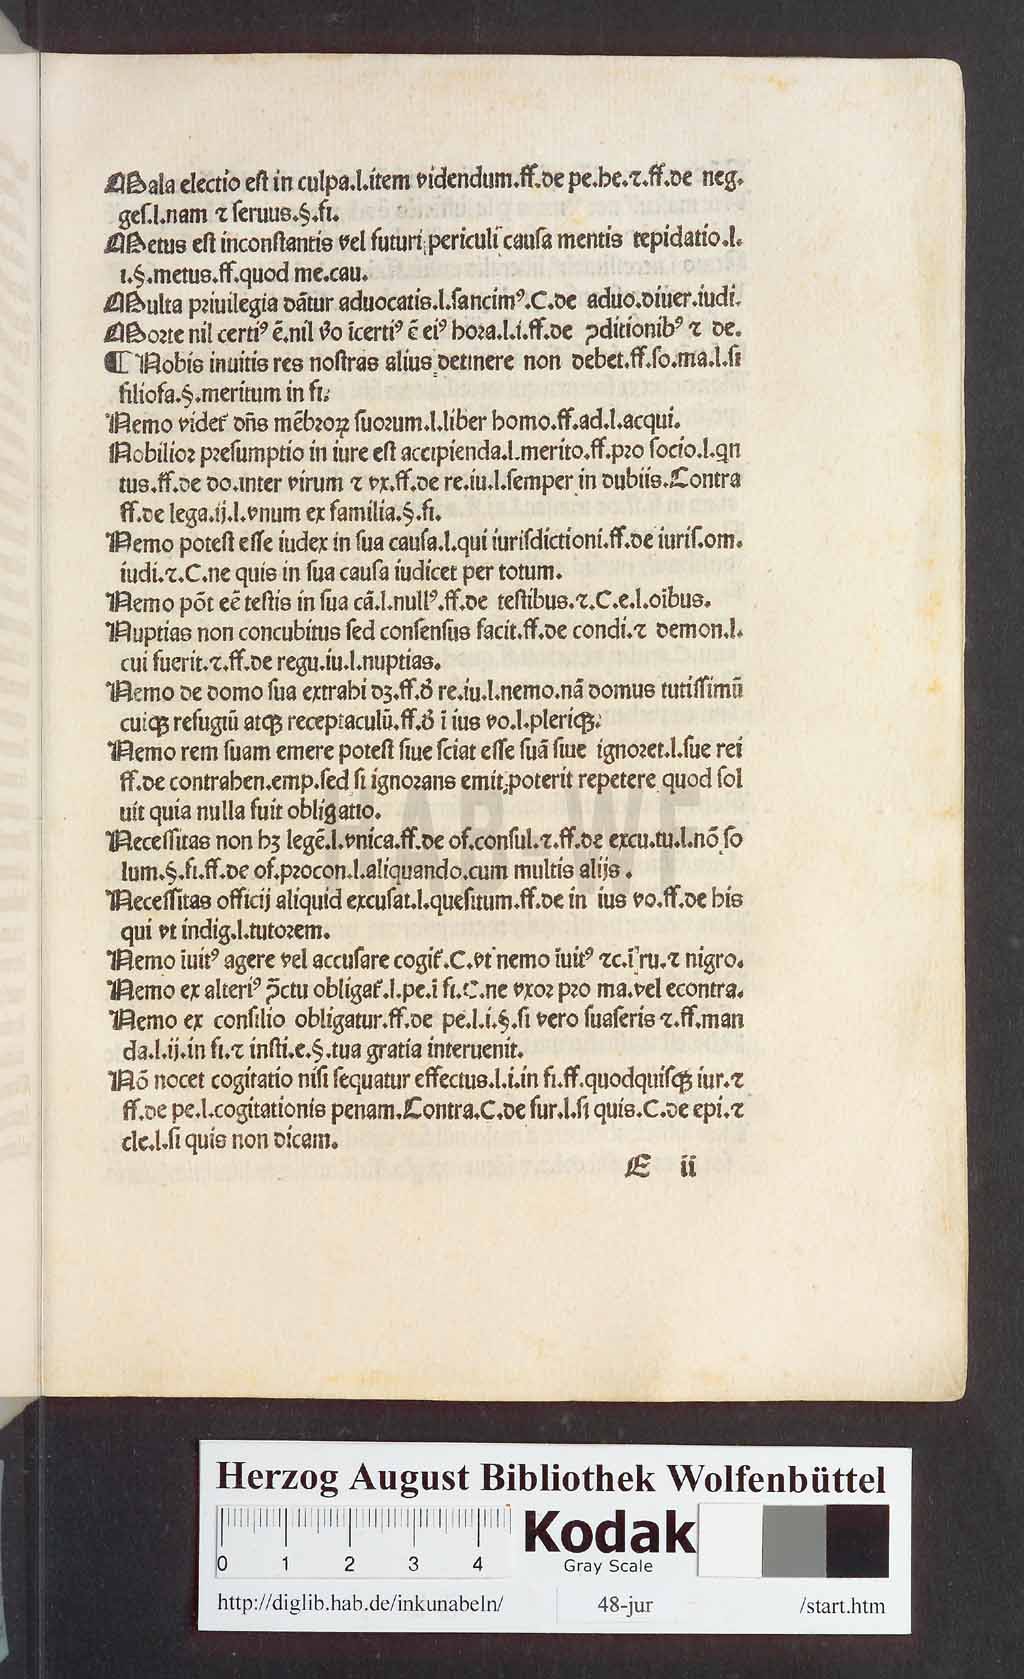 Mala electio est in culpa.l.item videndum.ff.de pe.he.⁊.ff.de neg.
gest.l.nam ⁊ seruus.§.fi.
Metus est inconstantis vel futuri periculi causa mentis tepidatio.l.
i.§.metus.ff.quod me.cau.
Multa priuilegia dãtur aduocatis.l.sancimꝰ.C.de aduo.diuer.iudi.
Morte nil certiꝰ ẽ.nil v̕o ĩcertiꝰ ẽ eiꝰ hora.l.i.ff.de ꝯditionibꝰ ⁊ de.
¶ Nobis inuitis res nostras alius detinere non debet.ff.so.ma.l.si
filiofa.§.meritum in fi.
Nemo videt᷑ dñs mẽbroꝝ suorum.l.liber homo.ff.ad.l.acqui.
Nobilior presumptio in iure est accipienda.l.merito.ff.pro socio.l.qn
tus.ff.de do.inter virum ⁊ vx.ff.de re.iu.l.semper in dubiis.Contra
ff.de lega.ij.l.vnum ex familia.§.fi.
Nemo potest esse iudex in sua causa.l.qui iurisdictioni.ff.de iuris.om.
iudi.⁊.C.ne quis in sua causa iudicet per totum.
Nemo põt eẽ testis in sua cã.l.nullꝰ.ff.de testibus.⁊.C.e.l.oĩbus.
Nuptias non concubitus sed consensus facit.ff.de condi.⁊ demon.l.
cui fuerit.⁊.ff.de regu.iu.l.nuptias.
Nemo de domo sua extrahi dꝫ.ff.d̕ re.iu.l.nemo.nã domus tutissimũ
cuiqꝫ refugiũ atqꝫ receptaculũ.ff.d̕ ĩ ius vo.l.pleriqꝫ.
Nemo rem suam emere potest siue sciat esse suã siue ignoret.l.sue rei
ff.de contrahen.emp.sed si ignorans emit poterit repetere quod sol
uit quia nulla fuit obligatio.
Necessitas non hꝫ legẽ.l.vnica.ff.de of.consul.⁊.ff.de excu.tu.l.nõ so
lum.§.fi.ff.de of.procon.l.aliquando.cum multis alijs.
Necessitas officij aliquid excusat.l.quesitum.ff.de in ius vo.ff.de his
qui vt indig.l.tutorem.
Nemo ĩuitꝰ agere vel accusare cogit᷑.C.vt nemo ĩuitꝰ ⁊c.ĩ ru.⁊ nigro.
Nemo ex alteriꝰ p̃ctu obligat᷑.l.pe.ĩ fi.C.ne vxor pro ma.vel econtra.
Nemo ex consilio obligatur.ff.de pe.l.i.§.si vero suaseris ⁊.ff.man
da.l.ij.in fi.⁊ insti.e.§.tua gratia interuenit.
Nõ nocet cogitatio nisi sequatur effectus.l.i.in fi.ff.quodquisqꝫ iur.⁊
ff.de pe.l.cogitationis penam.Contra.C.de fur.l.si quis.C.de epi.⁊
cle.l.si quis non dicam.
E ii
HAB-WF
Herzog August Bibliothek Wolfenbüttel
0 1 2 3 4
Kodak
Gray Scale
http://diglib.hab.de/inkunabeln/ 48-jur /start.htm